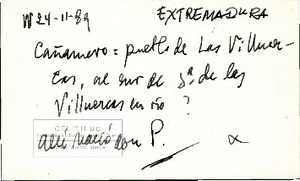 24-11-89 EXTREMADURA
Cañamero = pueblo de Las Villuer-
cas, al sur de Sª. de las
Villuercas en río ?
Allí nació don P.